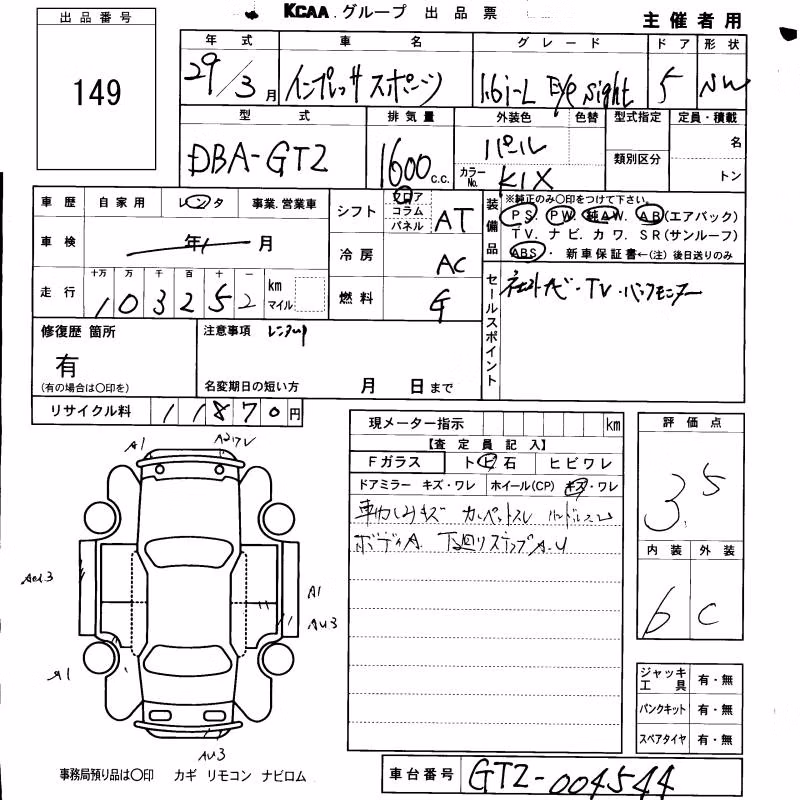 KCAA グループ 出品票
主催者用
出品番号
149
年式 車名 グレード ドア 形状
29/3月 インプレッサスポーツ 1.6i-L EyeSight 5 NW
型式 排気量 外装色 色替 型式指定 定員・積載
DBA-GT2 1600 c.c. パール 名
類別区分
カラーNo. K1X トン
車歴 自家用 レンタ 事業.営業車
車検 年 月
走行 十万 万 千 百 十 一
1 0 3 2 5 2 km マイル
シフト フロア コラム パネル AT
冷房 AC
燃料 G
装備品 ※純正のみ〇印をつけて下さい。
PS. PW. 純AW. AB(エアバック)
TV. ナビ. カワ. SR(サンルーフ)
ABS・ 新車保証書←(注) 後日送りのみ
セールスポイント 社外ナビ・TV・バックモニター
修復歴 箇所
有
(有の場合は〇印を)
注意事項 レンタUP
名変期日の短い方 月 日まで
リサイクル料 11870円
現メーター指示 km
【査定員記入】
Fガラス トビ石 ヒビワレ
ドアミラー キズ・ワレ ホイール(CP) キズ・ワレ
キズ カーペットスレ ハンドルスレ
ボディA 下廻り ステップA.U
評価点
3.5
内装 外装
6 C
A1
A2ワレ
A1
AU3
A1
AU3
ジャッキ 工具 有・無
パンクキット 有・無
スペアタイヤ 有・無
事務局預り品は〇印 カギ リモコン ナビロム
車台番号 GT2-004544